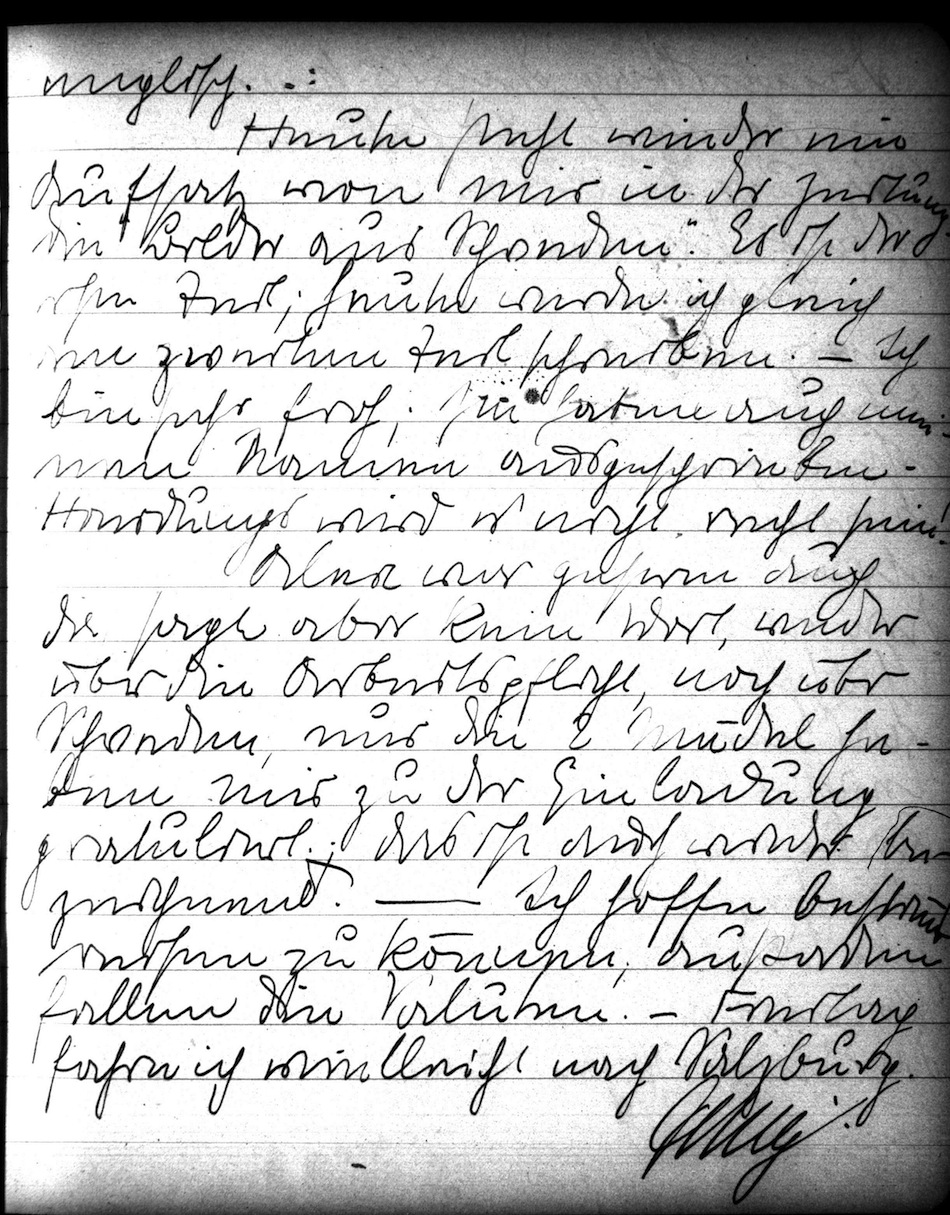 englisch. -:
Heute steht wieder ein
Aufsatz von mir in der Zeitung
die "Bilder aus Schweden". Es ist der
erste Teil; heute werde ich gleich
den zweiten Teil schreiben. — Ich
bin sehr froh; sie haben auch mei-
nen Namen ausgeschrieben.
wird es nicht recht sein.
war gestern auch
da sagte aber kein Wort, weder
über die Arbeitspflicht, noch über
Schweden, nur die 2 Mädel ha-
ben mir zu der Einladung
gratuliert.; das ist auch wieder
zeichnend. — Ich hoffe bestimmt
reisen zu können, außerdem
fallen die Valuten. — Freitag
fahre ich vielleicht nach Salzburg.